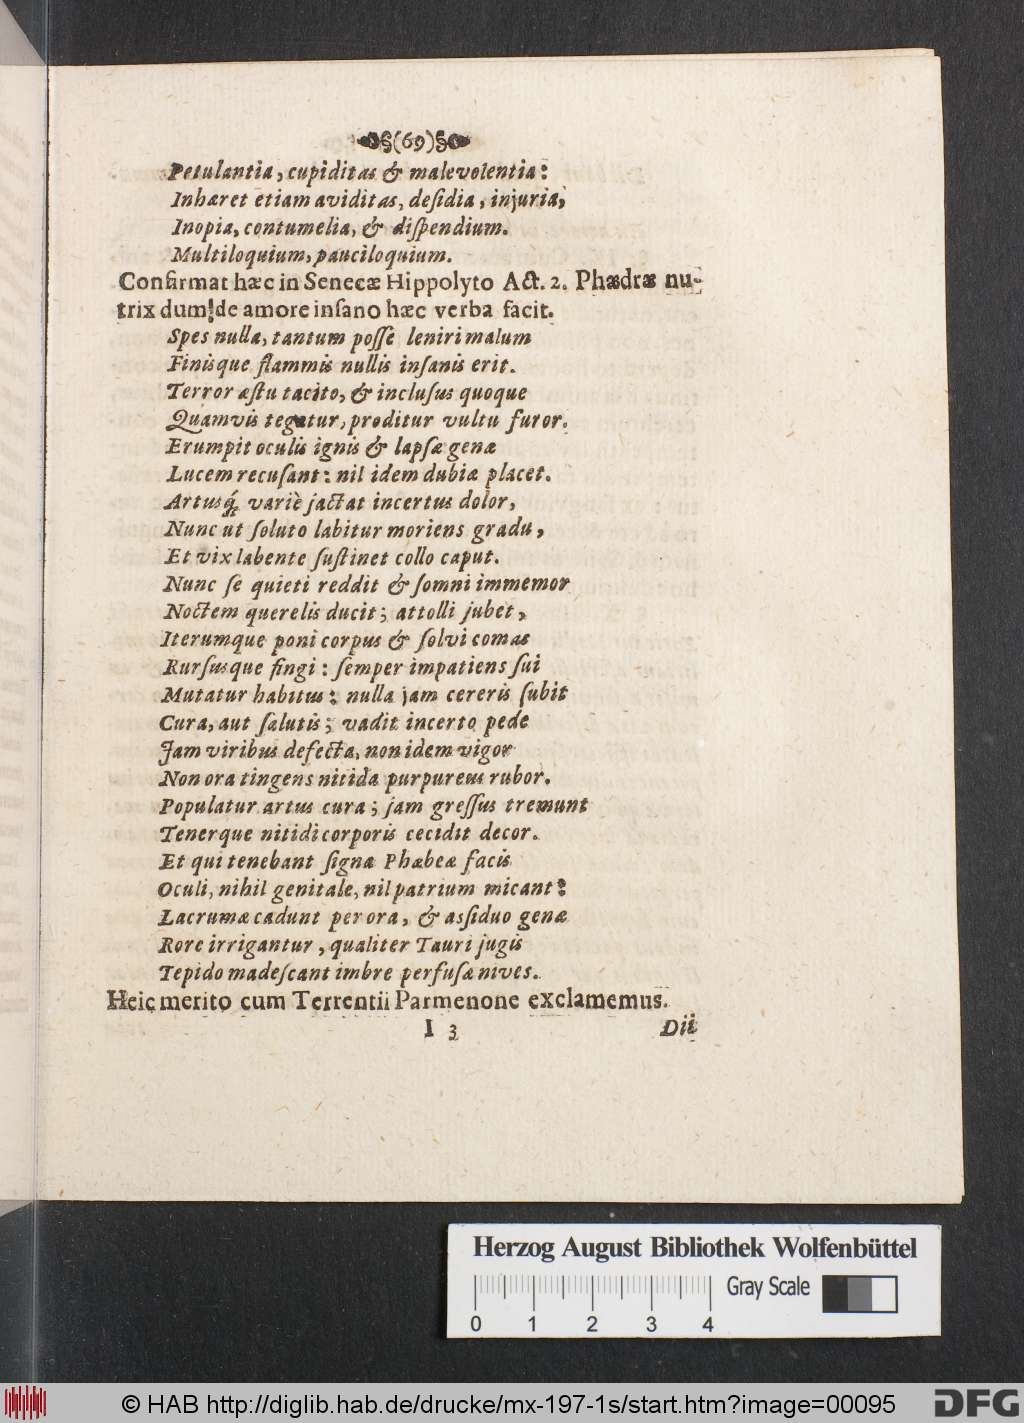 §(69)§
Petulantia, cupiditas & malevolentia:
Inhæret etiam aviditas, deſidia, injuria,
Inopia, contumelia, & diſpendium.
Multiloquium, pauciloquium.
Confirmat hæc in Senecæ Hippolyto Act. 2. Phædræ nu-
trix dum de amore inſano hæc verba facit.
Spes nulla, tantum poſſe leniri malum
Finisque flammis nullis inſanis erit.
Terror æſtu tacito, & incluſus quoque
Quamvis tegatur, proditur vultu furor.
Erumpit oculis ignis & lapſæ genæ
Lucem recuſant: nil idem dubiæ placet.
Artusq́; variè jactat incertus dolor,
Nunc ut ſoluto labitur moriens gradu,
Et vix labente ſuſtinet collo caput.
Nunc ſe quieti reddit & ſomni immemor
Noctem querelis ducit; attolli jubet,
Iterumque poni corpus & ſolvi comas
Rurſusque fingi: ſemper impatiens ſui
Mutatur habitus: nulla jam cereris ſubit
Cura, aut ſalutis; vadit incerto pede
Jam viribus defecta, non idem vigor
Non ora tingens nitida purpureus rubor.
Populatur artus cura; jam greſſus tremunt
Tenerque nitidi corporis cecidit decor.
Et qui tenebant ſigna Phæbeæ facis
Oculi, nihil genitale, nil patrium micant:
Lacrumæ cadunt per ora, & asſiduo genæ
Rore irrigantur, qualiter Tauri jugis
Tepido madeſcant imbre perfuſæ nives.
Heic merito cum Terrentii Parmenone exclamemus.
I 3 Dii
Herzog August Bibliothek Wolfenbüttel
Gray Scale
0 1 2 3 4
© HAB http://diglib.hab.de/drucke/mx-197-1s/start.htm?image=00095
DFG